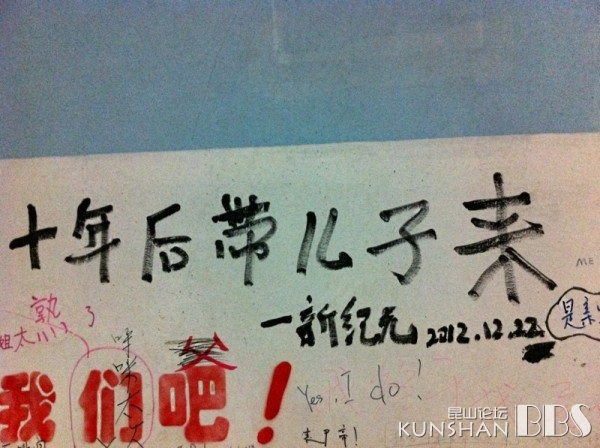 十年后带儿子来
ME
一新纪元 2012.12.22
是亲
孰
姐太
父
我们吧！
Yes, I do!
昆山论坛
KUNSHAN BBS